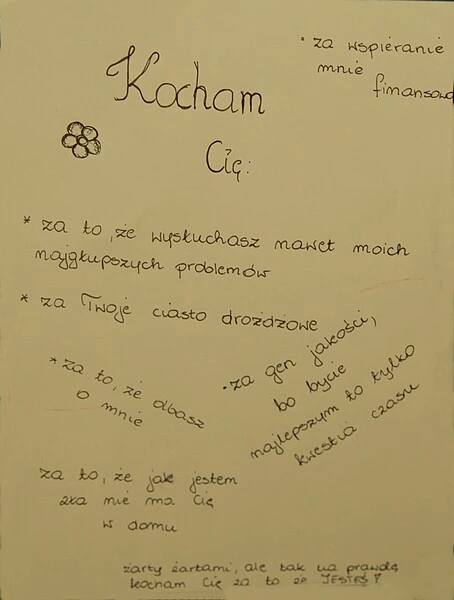 • za wspieranie
mnie
finansowo
Kocham
Cię:
* za to, że wysłuchasz nawet moich
najgłupszych problemów
* za Twoje ciasto drożdżowe
* za to, że dbasz
o mnie
• za gen jakości,
bo bycie
najlepszym to tylko
kwestia czasu
za to, że jak jestem
zła nie ma Cię
w domu
żarty żartami, ale tak na prawdę
kocham Cię za to że JESTEŚ!